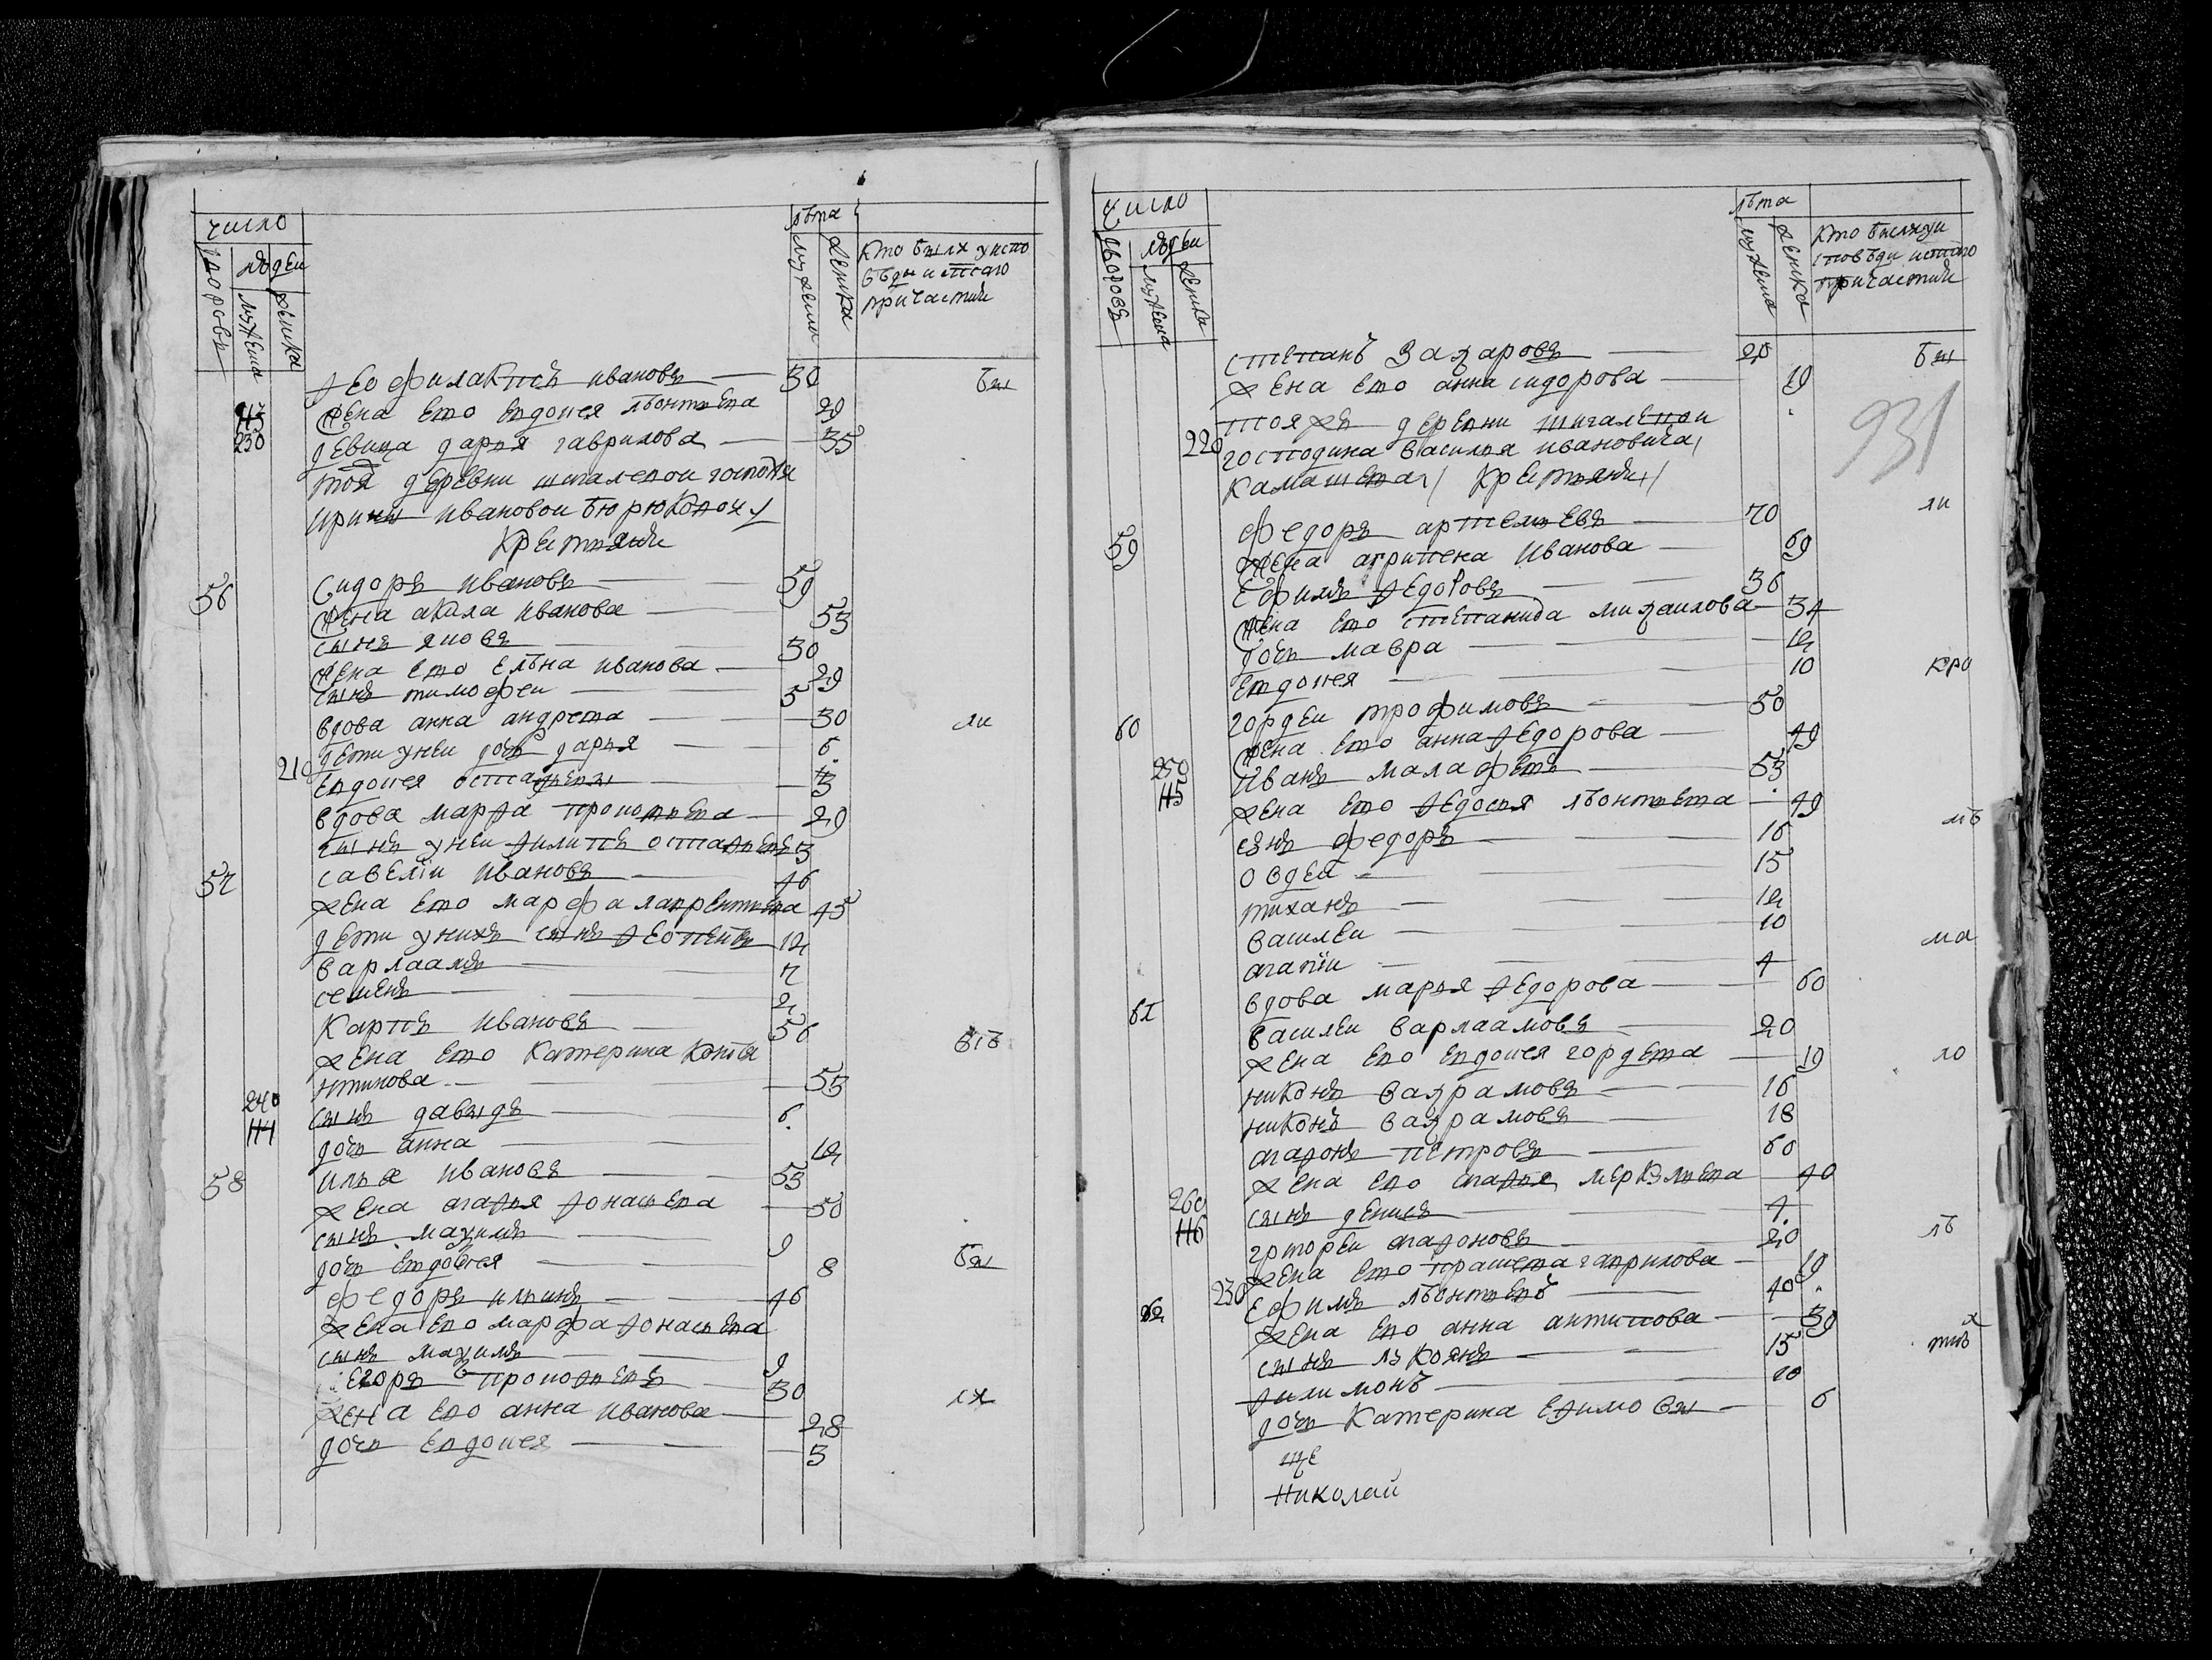 число
дворовъ
людеи
мужеска
женска
лѣта
мужеска
женска
кто былъ уиспо
вѣди истаго
причастия
Феофилактъ ивановъ — 30 бы
жена ево евдокея лѣонтьева 29
230
девица даря гаврилова — 35
тоя деревни шигалевои госпожи
ирины ивановои бюрюковои
крестьяня
56 Сидоръ ивановъ — 59
жена акила иванова — 53
сынъ яковъ 30
жена ево елѣна иванова — 29
сынъ тимофеи — 5
вдова анна андреева — 30 ли
дети унеи дочь даря — 6
210 евдокея остафьевы — 3
вдова марфа прокофьева — 29
сынъ унеи филипъ остафьевъ 3
57 савелiи ивановъ — 46
жена ево марфа лаврентьева 45
дети унихъ сынъ 12
варлаамъ — 7
семенъ — 2
карпъ ивановъ — 56
жена ево катерина конста
нтинова — 53
240
сынъ давыдъ — 6
дочь анна — 12
58 илья ивановъ — 53
жена агафья афонасьева — 50
сынъ максимъ — 9
дочь евдокея — 8 бы
федоръ ильинъ — 46
жена ево марфа афонасьева
сынъ максимъ — 9
егоръ прокофьевъ — 30
жена ево анна иванова — 28
дочь евдокея — 3
число
дворовъ
людеи
мужеска
женска
лѣта
мужеска
женска
кто былъ уи
споведи истаго
причастия
степанъ Захаровъ — 20 бы
жена ево анна сидорова — 19
тояже деревни шигалевои
220 господина василья ивановича
камашева крестьяня
931
59 федоръ артемьевъ — 70 ли
жена агрипена иванова — 69
Ефимъ федоровъ — 36
жена ево степанида михаилова — 34
дочь мавра — 12
евдокея — 10 кро
60 гордеи трофимовъ — 50
жена ево анна федорова — 49
250 иванъ малафеевъ — 53
115
жена ево федосья лѣонтьева — 49
сынъ федоръ — 16 лѣ
овдеи — 15
тиханъ — 12
василеи — 10
агапiи — 4 ма
вдова марья федорова — 60
61 василеи варлаамовъ — 20
жена ево евдокея гордеева — 19 ло
никонъ вахрамовъ — 16
никонъ вахрамовъ — 18
агафонъ петровъ — 60
жена ево агафья меркульева — 40
260 сынъ денисъ — 4
116
григореи агафоновъ — 20 лѣ
жена ево прасковя гаврилова — 19
230 ефимъ лѣонтьевъ — 40
62 жена ево анна антипова — 39
сынъ лукоянъ — 15
филимонъ — 10
дочь катерина ефимовы — 6
ще
Николаи